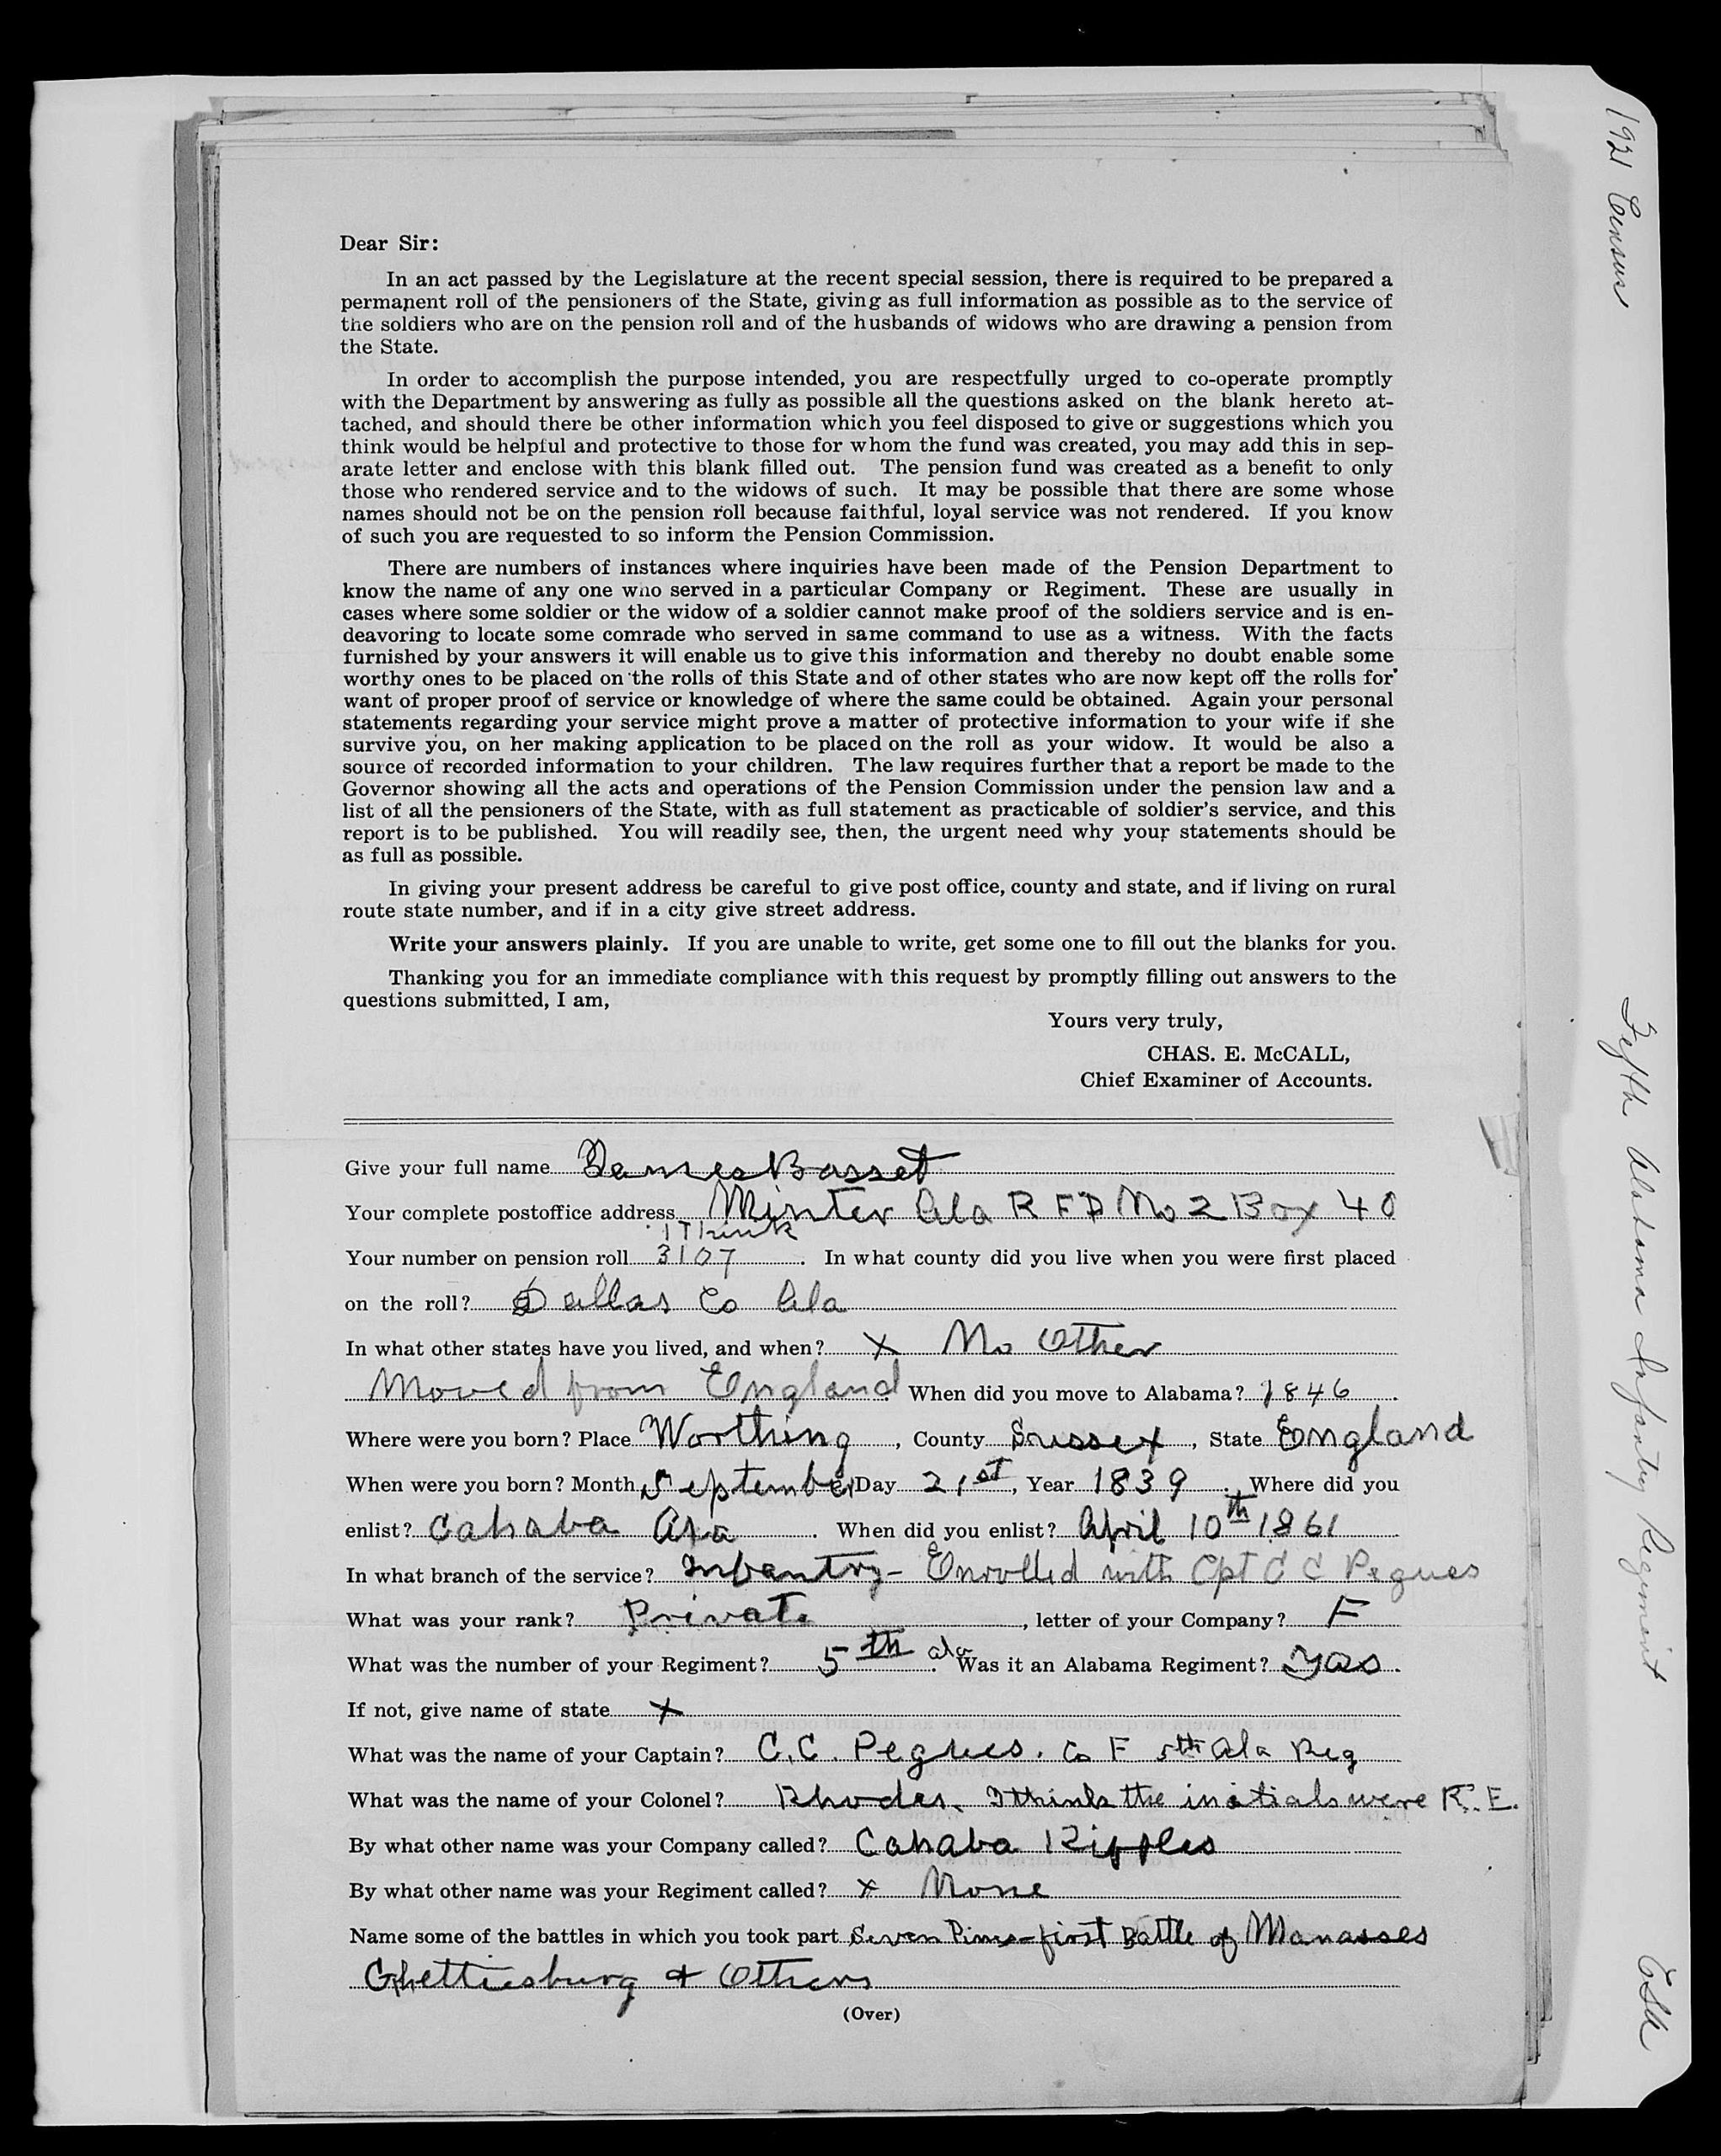 1921 Census
Dear Sir:
In an act passed by the Legislature at the recent special session, there is required to be prepared a
permanent roll of the pensioners of the State, giving as full information as possible as to the service of
the soldiers who are on the pension roll and of the husbands of widows who are drawing a pension from
the State.
In order to accomplish the purpose intended, you are respectfully urged to co-operate promptly
with the Department by answering as fully as possible all the questions asked on the blank hereto at-
tached, and should there be other information which you feel disposed to give or suggestions which you
think would be helpful and protective to those for whom the fund was created, you may add this in sep-
arate letter and enclose with this blank filled out. The pension fund was created as a benefit to only
those who rendered service and to the widows of such. It may be possible that there are some whose
names should not be on the pension roll because faithful, loyal service was not rendered. If you know
of such you are requested to so inform the Pension Commission.
There are numbers of instances where inquiries have been made of the Pension Department to
know the name of any one who served in a particular Company or Regiment. These are usually in
cases where some soldier or the widow of a soldier cannot make proof of the soldiers service and is en-
deavoring to locate some comrade who served in same command to use as a witness. With the facts
furnished by your answers it will enable us to give this information and thereby no doubt enable some
worthy ones to be placed on the rolls of this State and of other states who are now kept off the rolls for
want of proper proof of service or knowledge of where the same could be obtained. Again your personal
statements regarding your service might prove a matter of protective information to your wife if she
survive you, on her making application to be placed on the roll as your widow. It would be also a
source of recorded information to your children. The law requires further that a report be made to the
Governor showing all the acts and operations of the Pension Commission under the pension law and a
list of all the pensioners of the State, with as full statement as practicable of soldier's service, and this
report is to be published. You will readily see, then, the urgent need why your statements should be
as full as possible.
In giving your present address be careful to give post office, county and state, and if living on rural
route state number, and if in a city give street address.
Write your answers plainly. If you are unable to write, get some one to fill out the blanks for you.
Thanking you for an immediate compliance with this request by promptly filling out answers to the
questions submitted, I am,
Yours very truly,
CHAS. E. McCALL,
Chief Examiner of Accounts.
Give your full name James Basset
Your complete postoffice address Minter Ala R F D No 2 Box 40
I Think
Your number on pension roll 3107. In what county did you live when you were first placed
on the roll? Dallas Co Ala
In what other states have you lived, and when? x No Other
Moved from England When did you move to Alabama? 1846.
Where were you born? Place Worthing, County Sussex, State England
When were you born? Month September Day 21st, Year 1839. Where did you
enlist? Cahaba Ala. When did you enlist? April 10th 1861
In what branch of the service? Infantry - Enrolled with Cpt C C Pegues
What was your rank? Private, letter of your Company? F
What was the number of your Regiment? 5th ala. Was it an Alabama Regiment? yas.
If not, give name of state x
What was the name of your Captain? C. C. Pegues. Co F 5th Ala Reg
What was the name of your Colonel? Rhodes. I think the initials were R. E.
By what other name was your Company called? Cahaba Rifles
By what other name was your Regiment called? x None
Name some of the battles in which you took part Seven Pines - first Battle of Manasses
Ghettiesburg & Others
(Over)
Fifth Alabama Infantry Regiment